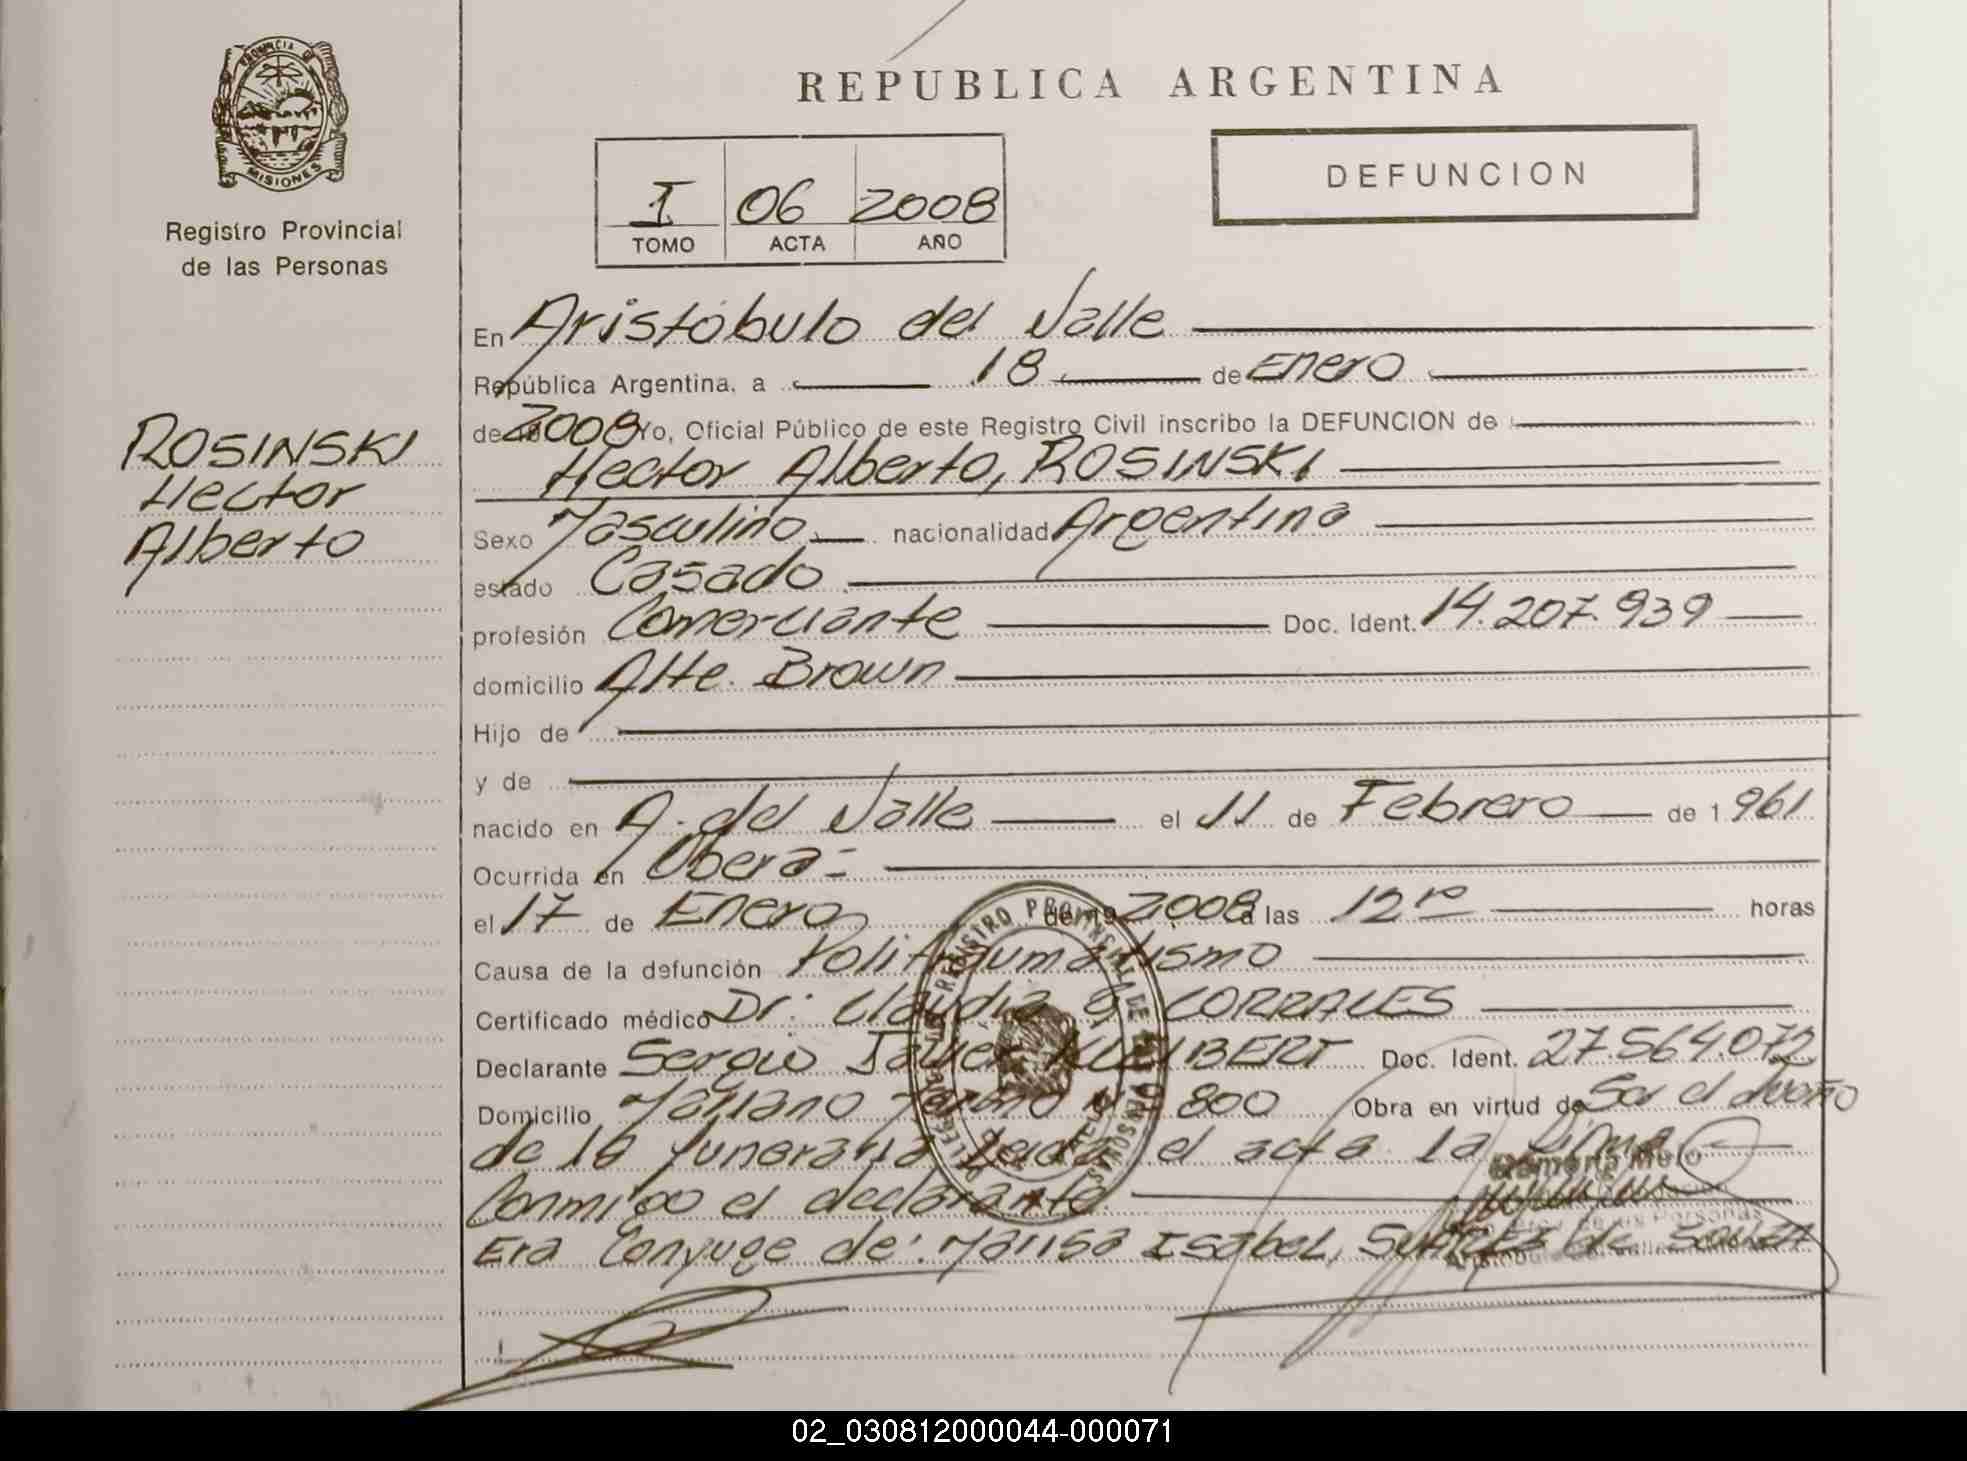 PROVINCIA DE
MISIONES
Registro Provincial
de las Personas
ROSINSKI
Hector
Alberto
REPUBLICA ARGENTINA
I 06 2008
TOMO ACTA AÑO
DEFUNCION
En Aristóbulo del Valle
República Argentina, a 18 de Enero
de 2008 Yo, Oficial Público de este Registro Civil inscribo la DEFUNCION de
Hector Alberto, ROSINSKI
Sexo Masculino nacionalidad Argentina
estado Casado
profesión Comerciante Doc. Ident. 14.207.939
domicilio Alte. Brown
Hijo de
y de
nacido en A. del Valle el 11 de Febrero de 1961
Ocurrida en Obera
el 17 de Enero de 19 2008 a las 12 horas
Causa de la defunción Politraumatismo
Certificado médico Dr: Claudia G CORRALES
Declarante Sergio Javier Doc. Ident. 27.564.072
Domicilio Mariano Moreno Nº 800 Obra en virtud de Ser el dueño
de la funeraria Leida el acta la firma
Conmigo el declarante
Era Conyuge de: Marisa Isabel, de Souza
REGISTRO PROVINCIAL DE LAS PERSONAS
02_030812000044-000071